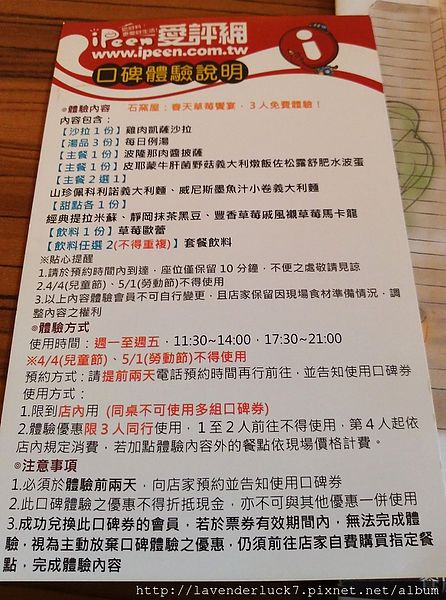 iPeen愛評網
www.ipeen.com.tw
口碑體驗說明
⊙體驗內容 石窯屋：春天草莓饗宴，3人免費體驗！
內容包含：
【沙拉1份】雞肉凱薩沙拉
【湯品3份】每日例湯
【主餐1份】波隆那肉醬披薩
【主餐1份】皮耶蒙牛肝菌野菇義大利燉飯佐松露舒肥水波蛋
【主餐2選1】
山珍佩科利諾義大利麵、威尼斯墨魚汁小卷義大利麵
【甜點各1份】
經典提拉米蘇、靜岡抹茶黑豆、豐香草莓戚風襯草莓馬卡龍
【飲料1份】草莓歐蕾
【飲料任選2(不得重複)】套餐飲料
※貼心提醒
1.請於預約時間內到達，座位僅保留10分鐘，不便之處敬請見諒
2.4/4(兒童節)、5/1(勞動節)不得使用
3.以上內容體驗會員不可自行變更，且店家保留因現場食材準備情況，調
整內容之權利
⊙體驗方式
使用時間：週一至週五，11:30~14:00，17:30~21:00
※4/4(兒童節)、5/1(勞動節)不得使用
預約方式：請提前兩天電話預約時間再行前往，並告知使用口碑券
使用方式：
1.限到店內用 (同桌不可使用多組口碑券)
2.體驗優惠限3人同行使用，1至2人前往不得使用，第4人起依
店內規定消費，若加點體驗內容外的餐點依現場價格計費。
⊙注意事項
1.必須於體驗前兩天，向店家預約並告知使用口碑券
2.此口碑體驗之優惠不得折抵現金，亦不可與其他優惠一併使用
3.成功兌換此口碑券的會員，若於票券有效期間內，無法完成體
驗，視為主動放棄口碑體驗之優惠，仍須前往店家自費購買指定餐
點，完成體驗內容
http://lavenderluck7.pixnet.net/album